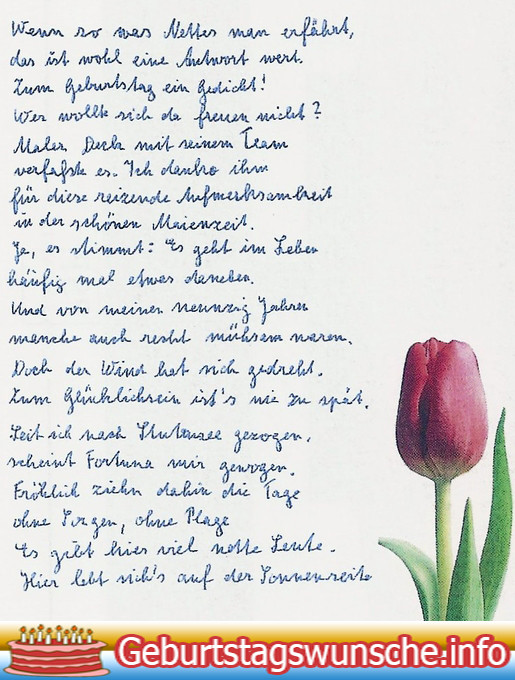 Wenn so was Nettes man erfährt,
das ist wohl eine Antwort wert.
Zum Geburtstag ein Gedicht!
Wer wollte sich da freuen nicht?
Maler Deck mit seinem Team
verfaßte es. Ich danke ihm
für diese reizende Aufmerksamkeit
in der schönen Maienzeit.
Ja, es stimmt: Es geht im Leben
häufig mal etwas daneben.
Und von meinen neunzig Jahren
manche auch recht mühsam waren.
Doch der Wind hat sich gedreht.
Zum Glücklichsein ist's nie zu spät.
Seit ich nach Stutensee gezogen,
scheint Fortuna mir gewogen.
Fröhlich ziehn dahin die Tage
ohne Sorgen, ohne Plage
Es gibt hier viel nette Leute.
Hier lebt sich's auf der Sonnenseite
Geburtstagswunsche.info